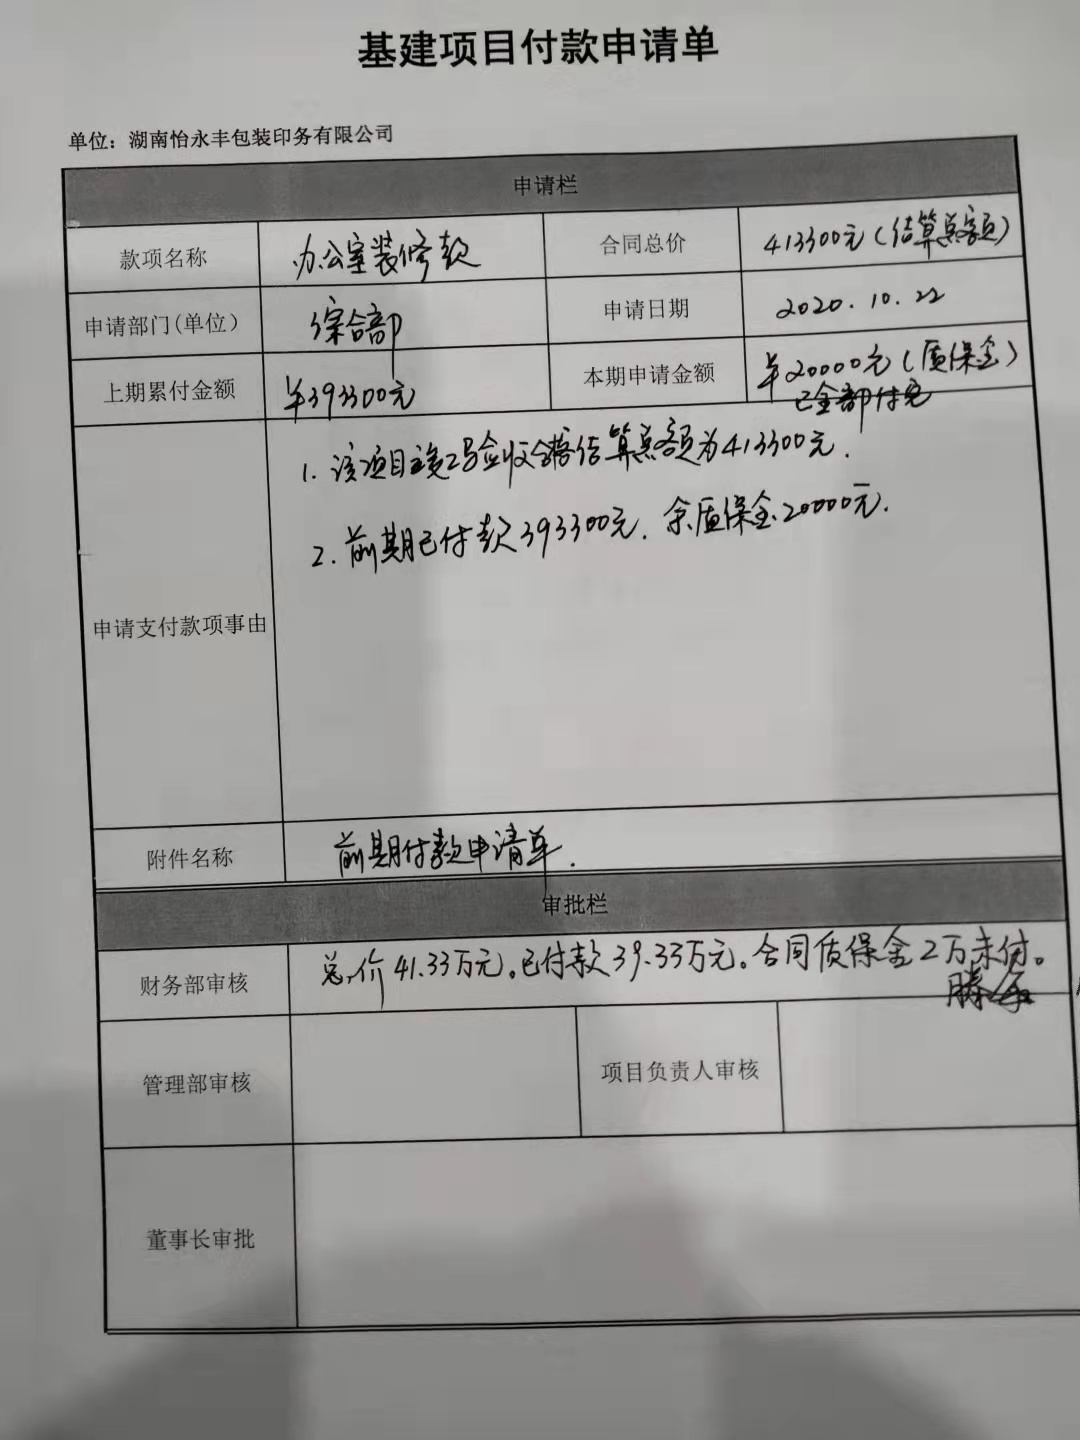 基建项目付款申请单
单位：湖南怡永丰包装印务有限公司
申请栏
款项名称 办公室装修款 合同总价 413300元（结算总额）
申请部门(单位） 综合部 申请日期 2020.10.22
上期累付金额 ¥393300元 本期申请金额 ¥20000元（质保金）
已全部付完
1. 该项目竣工验收合格结算总额为413300元.
2. 前期已付款393300元. 余质保金20000元.
申请支付款项事由
附件名称 前期付款申请单.
审批栏
财务部审核 总价41.33万元。已付款39.33万元。合同质保金2万未付。
管理部审核 项目负责人审核
董事长审批